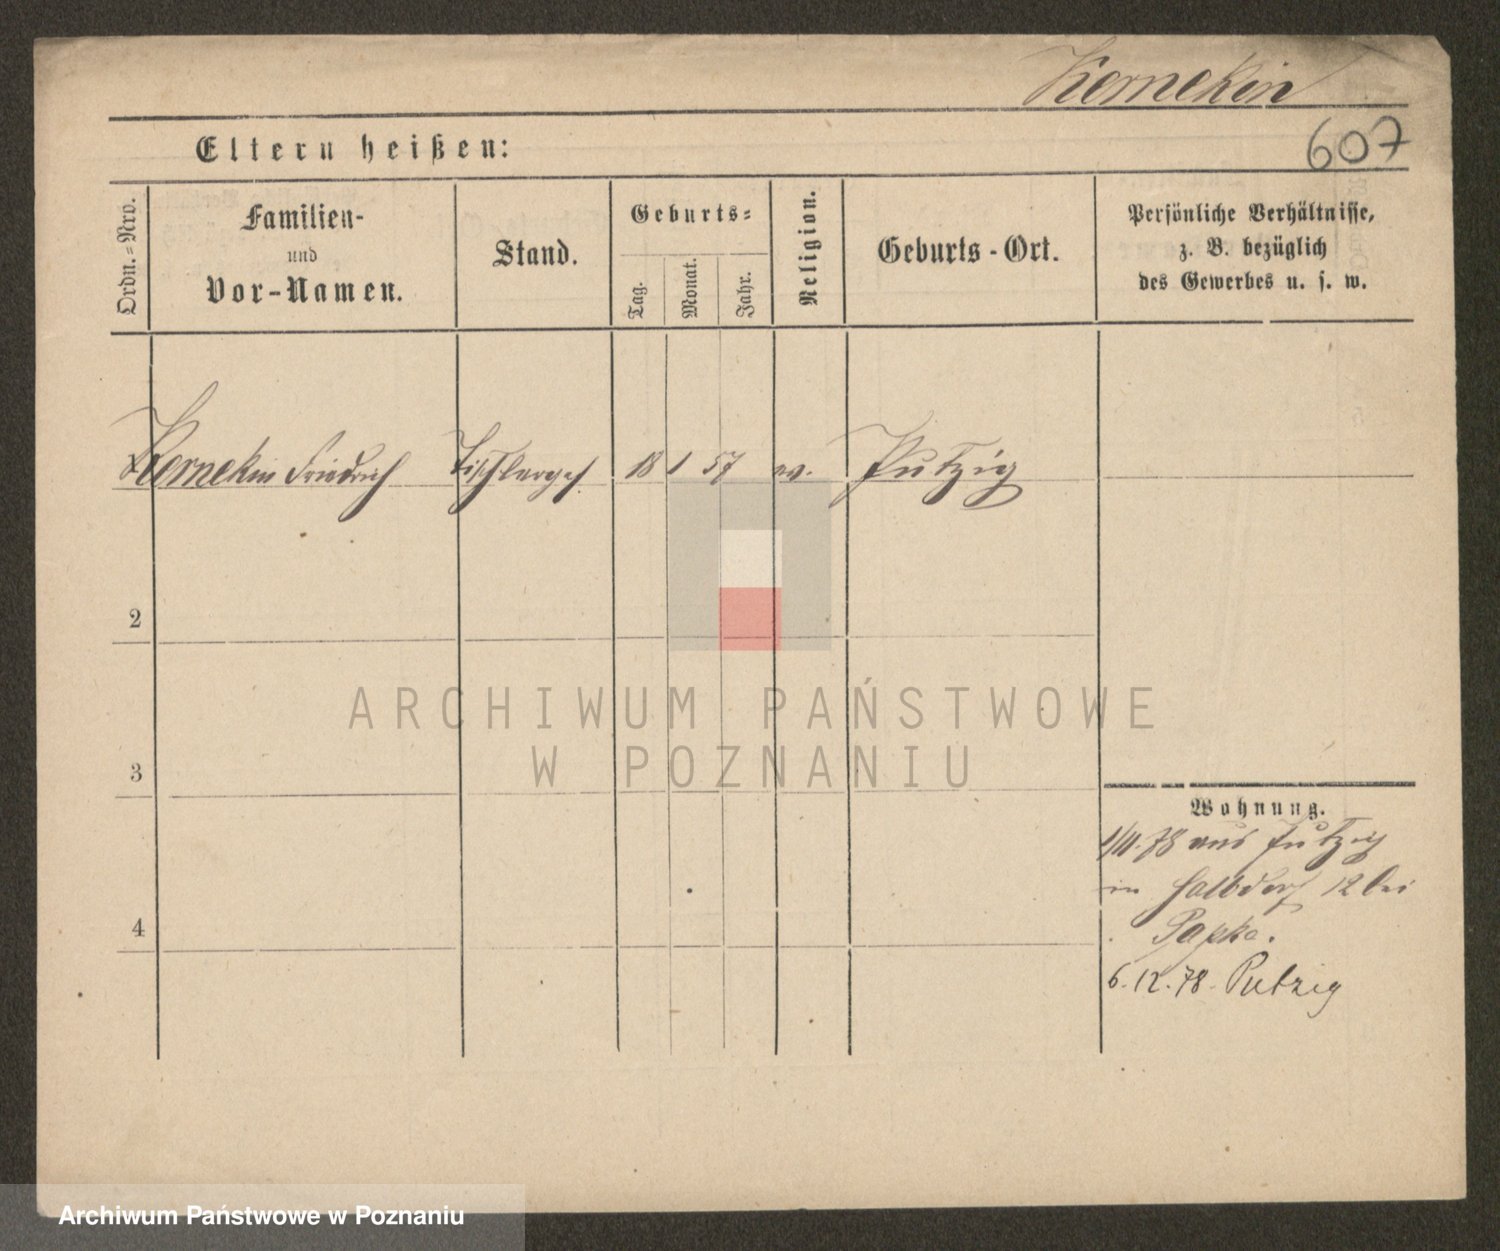 Kornekin
607
Eltern heißen:
Ordn.-Nro.
Familien-
und
Vor-Namen.
Stand.
Geburts-
Tag.
Monat.
Jahr.
Religion.
Geburts-Ort.
Persönliche Verhältnisse,
z. B. bezüglich
des Gewerbes u. s. w.
Kornekin Friedrich Tischlerges. 18 1 57 ev. Putzig
2
3
4
Wohnung.
1/11.78 aus Putzig
in Halbdorf 12 bei
Papke.
6.12.78. Putzig
ARCHIWUM PAŃSTWOWE
W POZNANIU
Archiwum Państwowe w Poznaniu